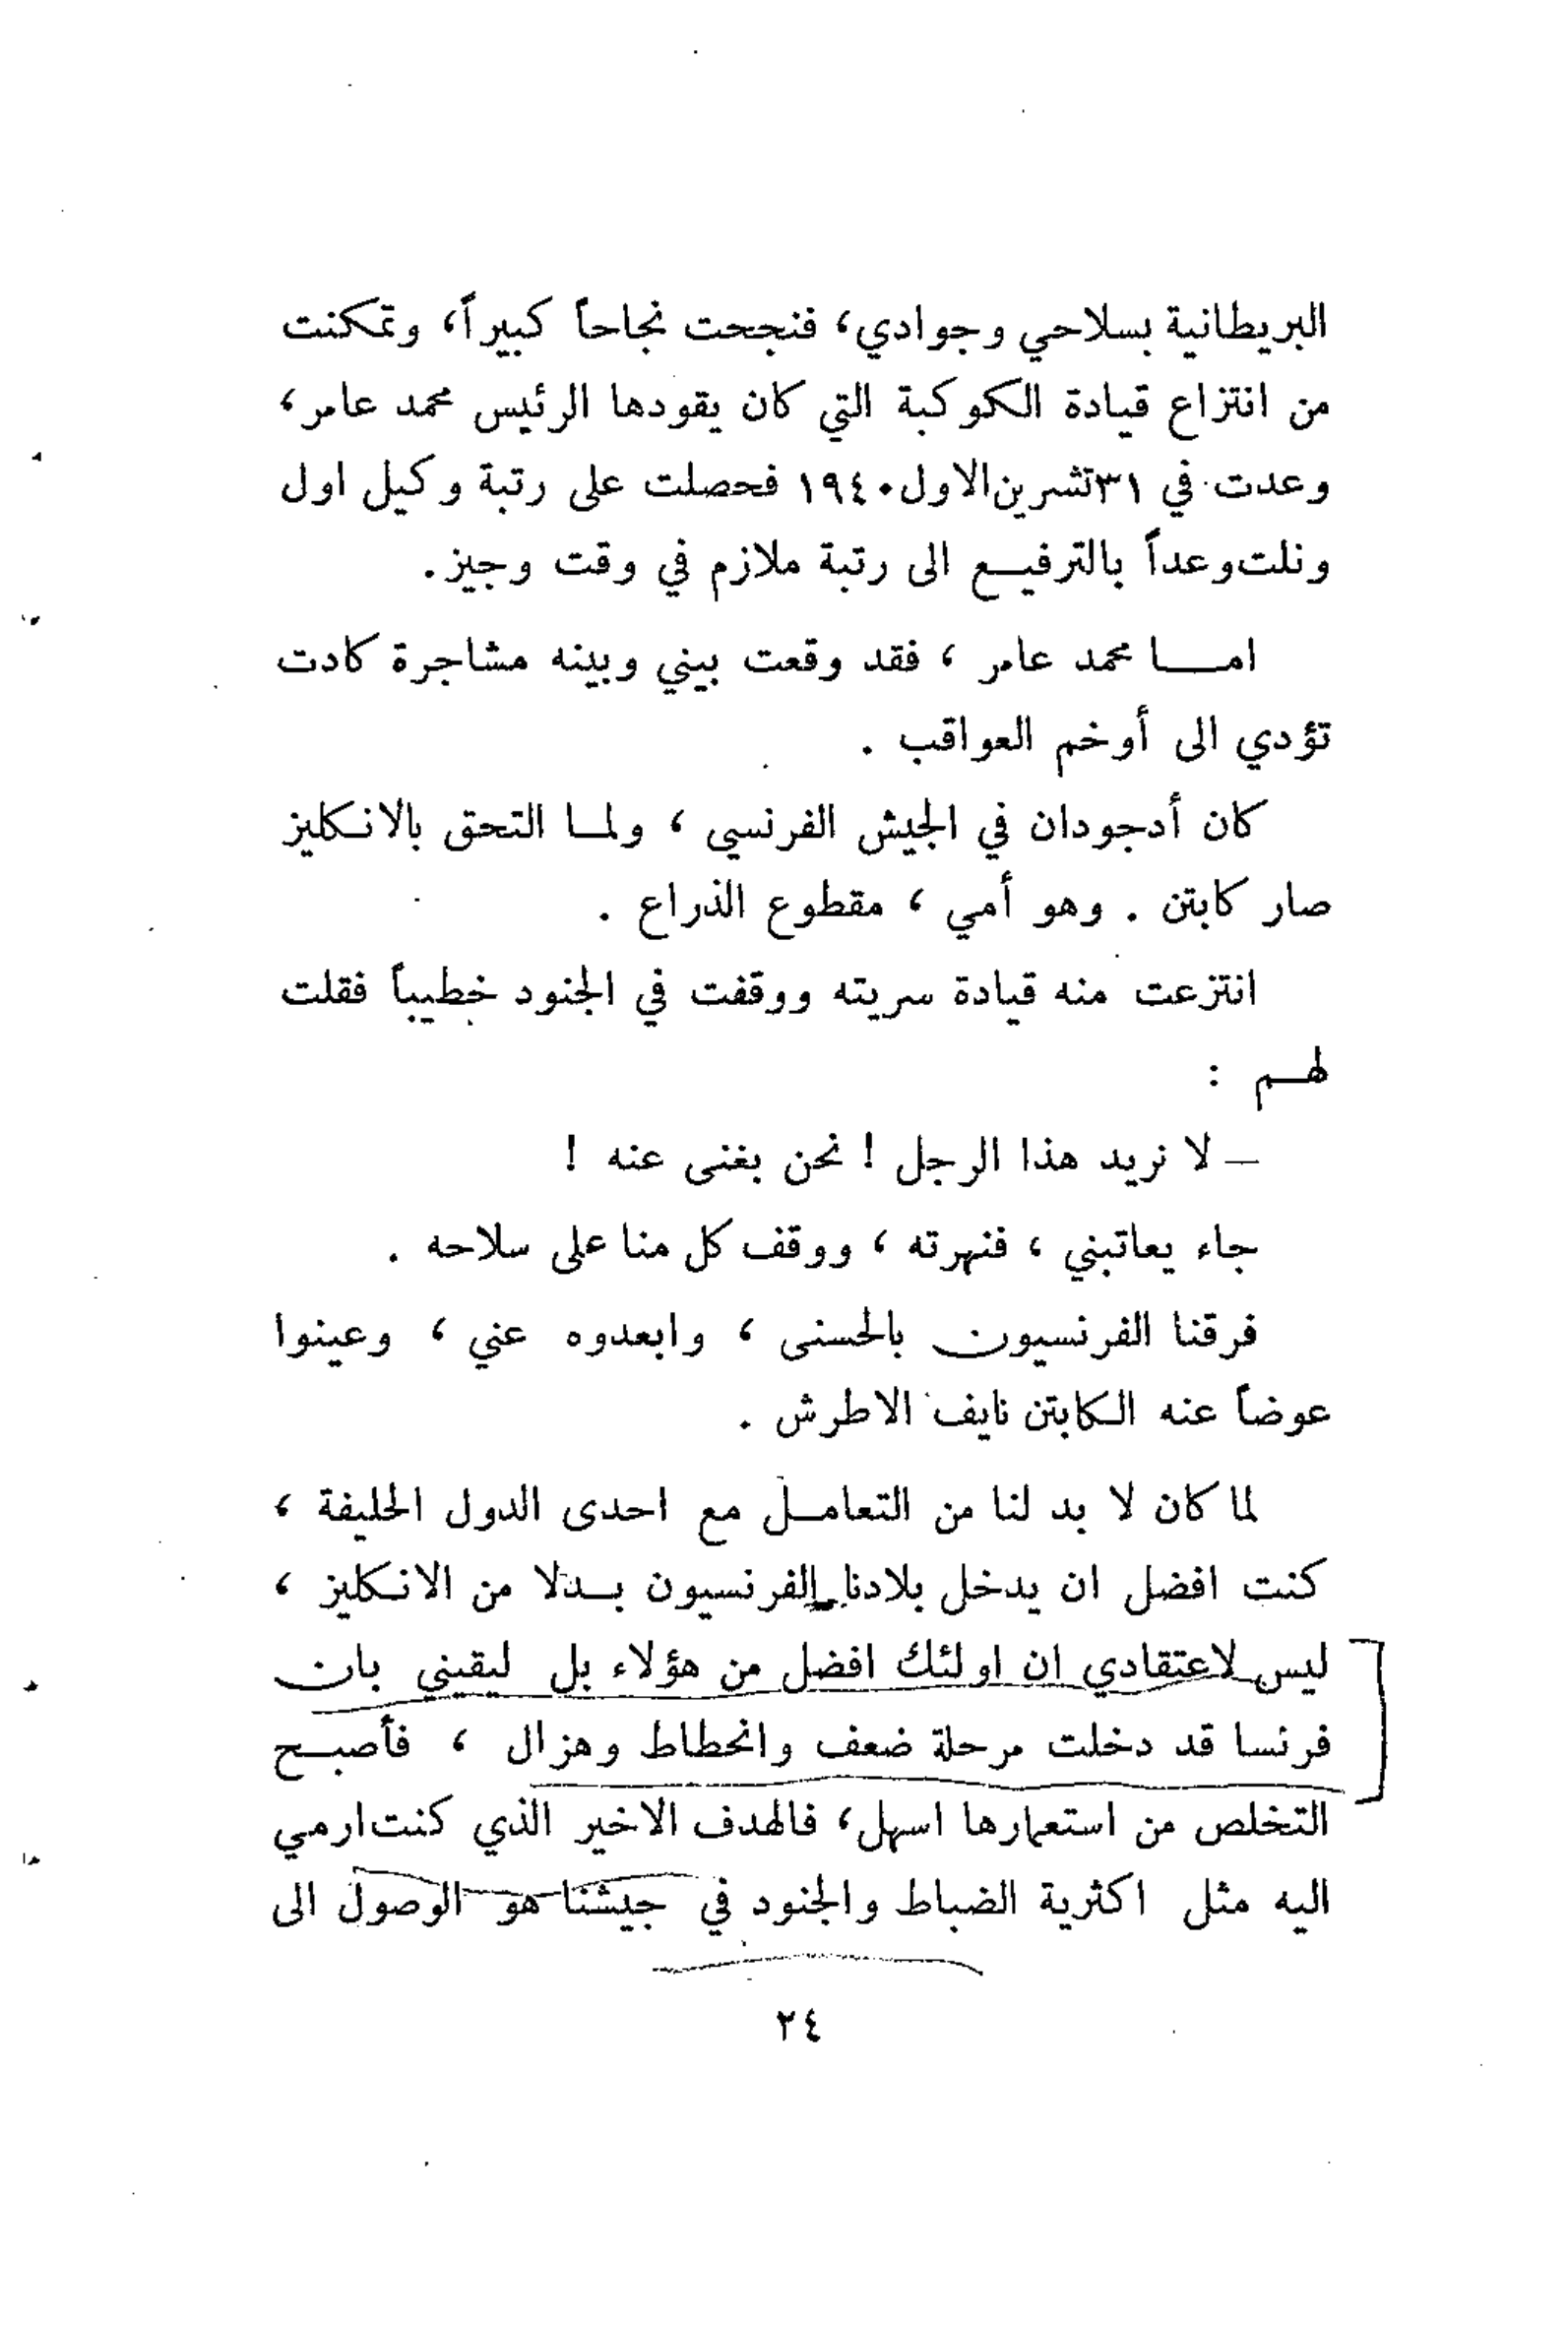 البريطانية بسلاحي وجوادي، فنجحت نجاحاً كبيراً، وتمكنت
من انتزاع قيادة الكوكبة التي كان يقودها الرئيس محمد عامر،
وعدت في ٣١ تشرين الاول ١٩٤٠ فحصلت على رتبة وكيل اول
ونلت وعداً بالترفيـع الى رتبة ملازم في وقت وجيز.
امـــا محمد عامر ، فقد وقعت بيني وبينه مشاجرة كادت
تؤدي الى أوخم العواقب .
كان أدجودان في الجيش الفرنسي ، ولمـا التحق بالانـكليز
صار كابتن . وهو أمي ، مقطوع الذراع .
انتزعت منه قيادة سريته ووقفت في الجنود خطيباً فقلت
لهـم :
– لا نريد هذا الرجل ! نحن بغنى عنه !
جاء يعاتبني ، فنهرته ، ووقف كل منا على سلاحه .
فرقنا الفرنسيون بالحسنى ، وابعدوه عني ، وعينوا
عوضاً عنه الـكابتن نايف الاطرش .
لما كان لا بد لنا من التعامـل مع احدى الدول الحليفة ،
كنت افضل ان يدخل بلادنا الفرنسيون بـدلا من الانـكليز ،
ليس لاعتقادي ان اولئك افضل من هؤلاء بل ليقيني بان
فرنسا قد دخلت مرحلة ضعف وانحطاط وهزال ، فأصبـح
التخلص من استعمارها اسهل، فالهدف الاخير الذي كنت ارمي
اليه مثل اكثرية الضباط والجنود في جيشنا هو الوصول الى
٢٤